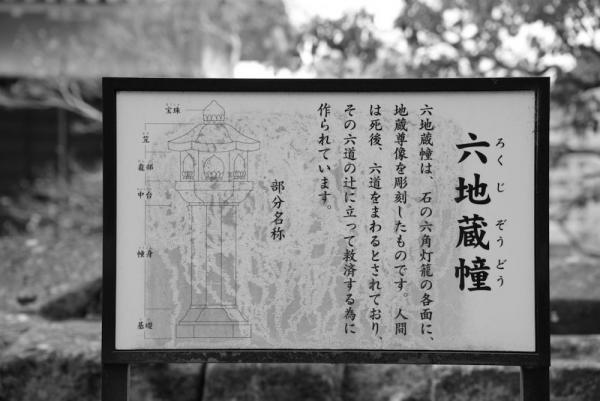 六地蔵幢
ろくじぞうどう
六地蔵幢は、石の六角灯籠の各面に、
地蔵尊像を彫刻したものです。人間
は死後、六道をまわるとされており、
その六道の辻に立って救済する為に
作られています。
部分名称
宝珠
笠
龕部
中台
幢身
基礎